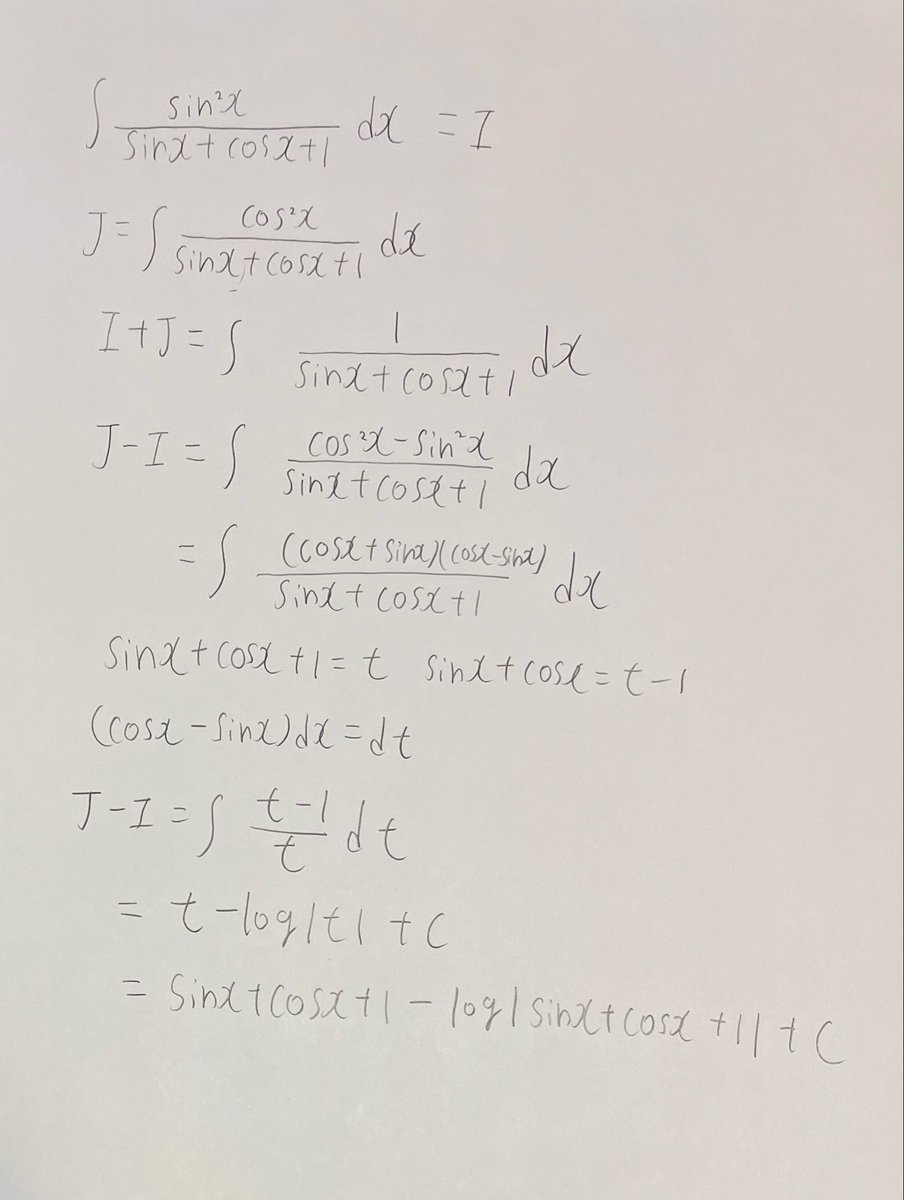 ∫ sin²x / (sinx + cosx + 1) dx = I
J = ∫ cos²x / (sinx + cosx + 1) dx
I + J = ∫ 1 / (sinx + cosx + 1) dx
J - I = ∫ (cos²x - sin²x) / (sinx + cosx + 1) dx
= ∫ (cosx + sinx)(cosx - sinx) / (sinx + cosx + 1) dx
sinx + cosx + 1 = t sinx + cosx = t - 1
(cosx - sinx)dx = dt
J - I = ∫ (t - 1) / t dt
= t - log|t| + C
= sinx + cosx + 1 - log|sinx + cosx + 1| + C